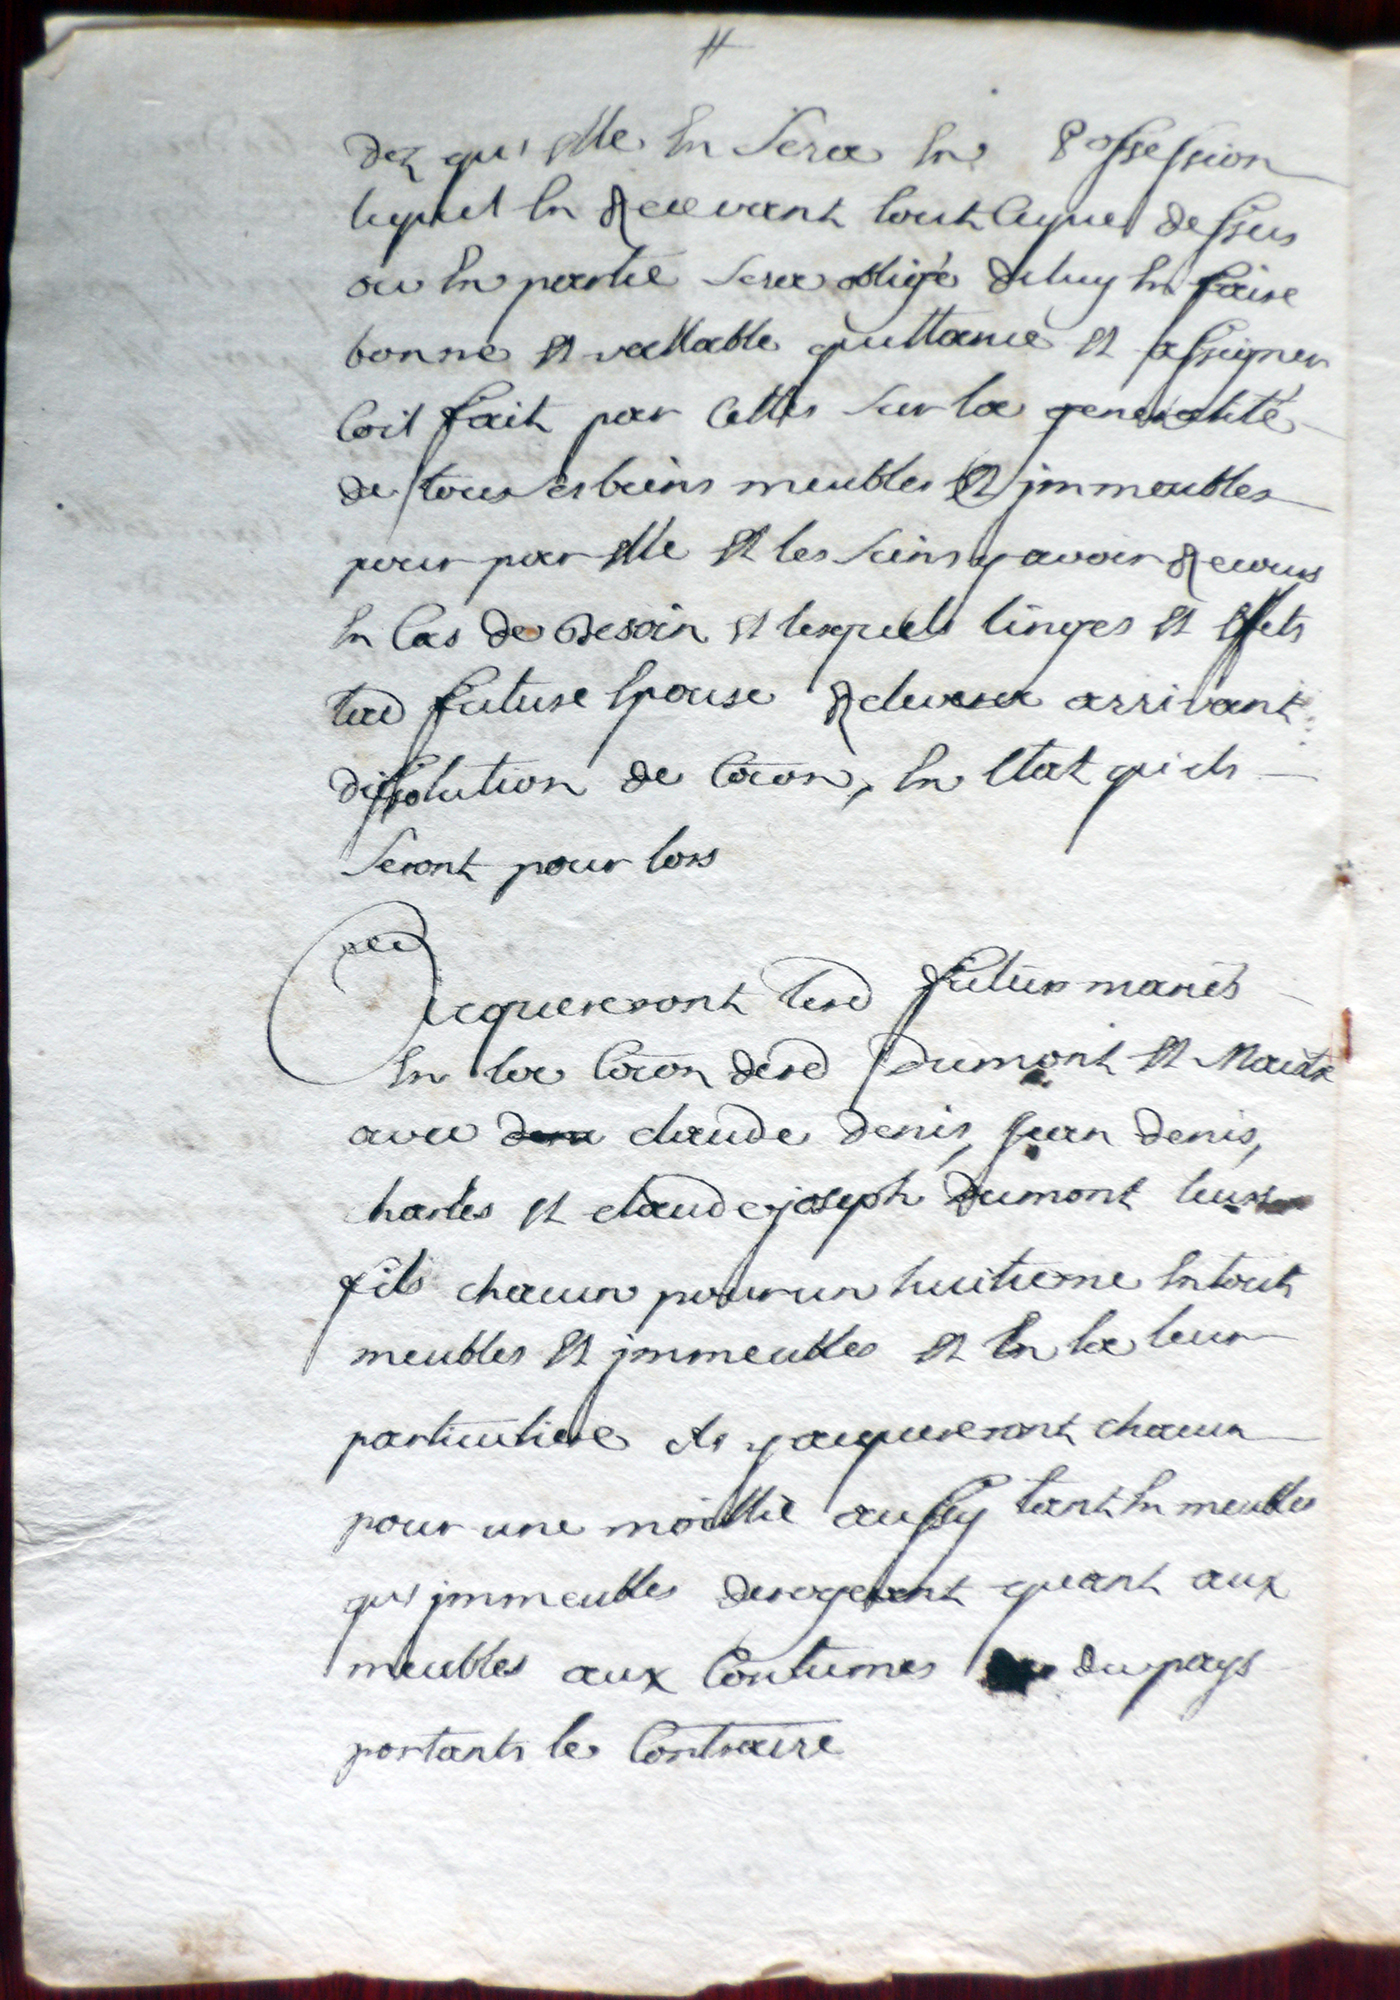 dez qu'elle En sera En Possession
lequel En Recevant tout ceque dessus
ou En partie sera obligé deluy En faire
bonne Et vallable quittance Et assigner
Coil fait par Cettes sur la generalité
de tous ses biens meubles Et jmmeubles
pour par Elle Et les siens y avoir Recours
En Cas de Besoin Et lesquels linges Et Effets
lad future Epouse Relevera arrivant
dissolution de Cõcon, En Etat qu'ils
seront pour lors
Acquereront lesd futurs mariés
En la Cõcon desd Dumont Et Maitre
avec claude denis, Jean denis,
charles Et claude joseph Dumont leurs
fils chacun pour un huitieme En tout
meubles Et jmmeubles Et En la leur
particuliere ils y acquereront chacun
pour une moittié aussy tant En meubles
qu'jmmeubles derogeant quant aux
meubles aux Coutumes du pays
portants le Contraire